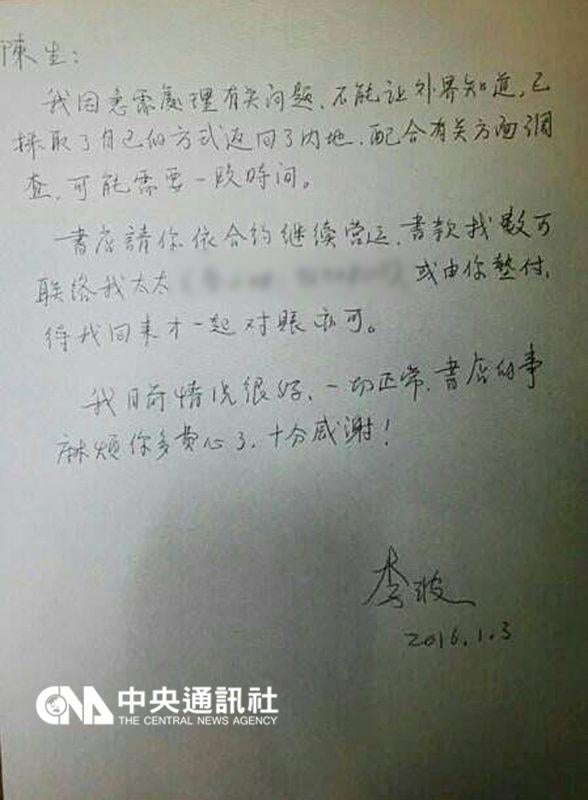 陳生：
我因急需處理有关问题，不能让外界知道，已
採取了自己的方式返回了内地，配合有关方面調
查，可能需要一段時间。
書店請你依合約继续营运，書款找數可
联络我太太
或由你墊付，
待我回来才一起对賬亦可。
我目前情况很好，一切正常，書店的事
麻烦你多费心了，十分感謝！
李波
2016.1.3
CNA 中央通訊社
THE CENTRAL NEWS AGENCY